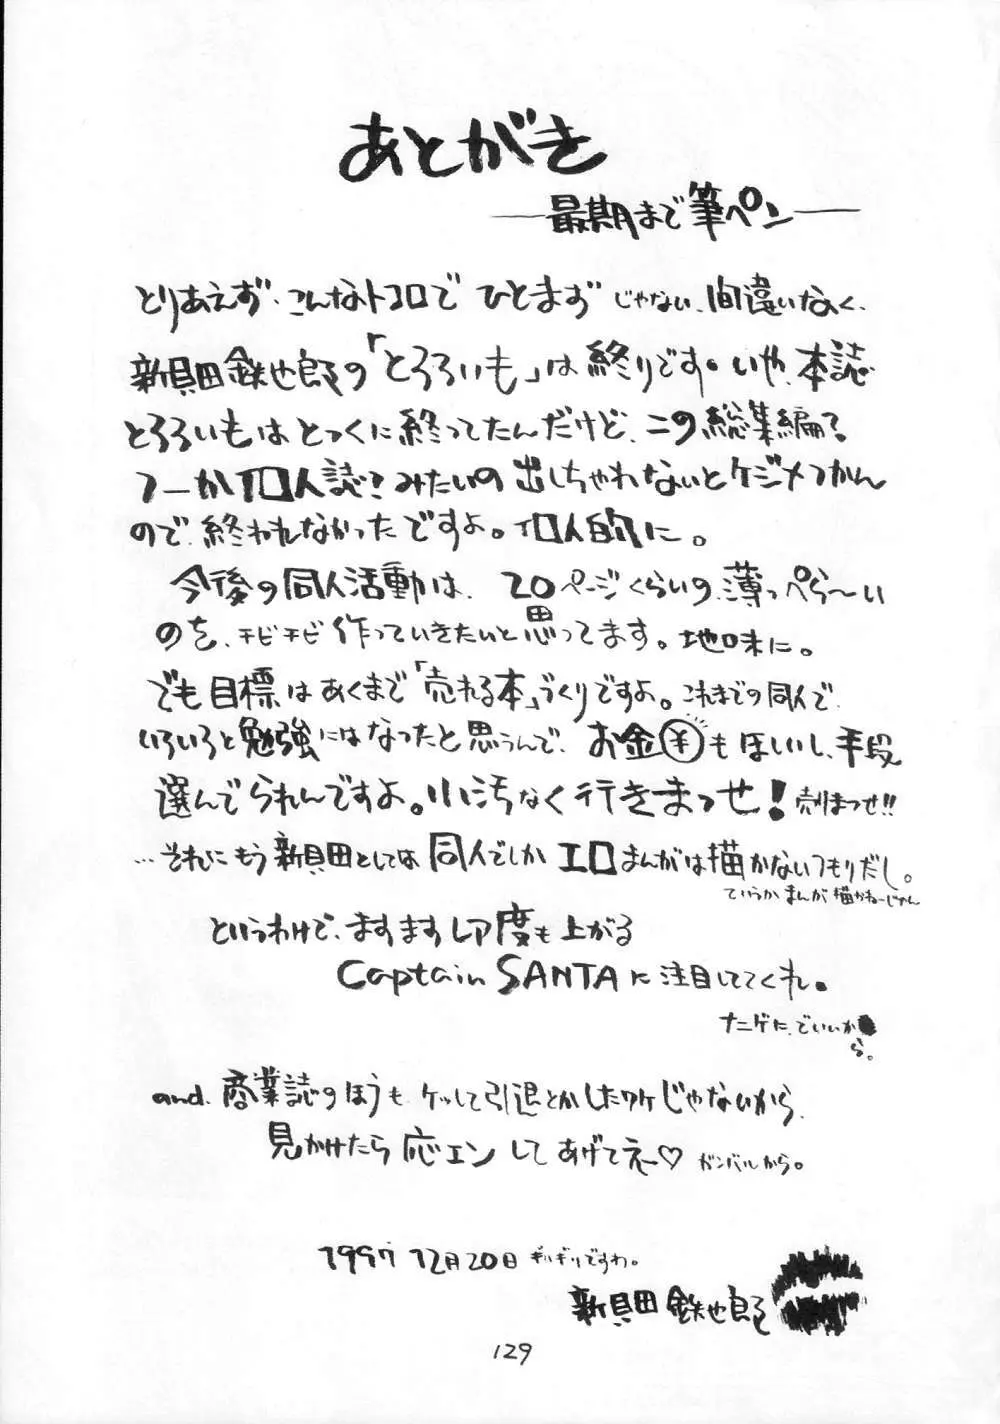 あとがき
―最期まで筆ペン―
とりあえず、こんなトコロでひとまずじゃない、間違いなく、
新貝田鉄也郎の「とろろいも」は終りです。いや、本誌
とろろいもはとっくに終ってたんだけど、この総集編?
つーか個人誌?みたいの出しちゃわないとケジメつかん
ので、終われなかったですよ。個人的に。
今後の同人活動は、20ページくらいの、薄っぺら〜い
のを、チビチビ作っていきたいと思ってます。地味に。
でも目標はあくまで「売れる本」づくりですよ。これまでの同人で、
いろいろと勉強にはなったと思うんで、お金¥もほしいし、手段
選んでられんですよ。小汚なく行きまっせ!売りまっせ!!
…それにもう新貝田としては同人でしかエロまんがは描かないつもりだし。
ていうかまんが描かねーじゃん
というわけで、ますますレア度も上がる
Captain SANTAに注目しててくれ。
ナニゲに、でいいか
ら。
and、商業誌のほうも、ケッして引退とかしたワケじゃないから、
見かけたら応エンしてあげてネー♡ガンバルから。
1997 12月20日 ギリギリですわ。
新貝田鉄也郎
129